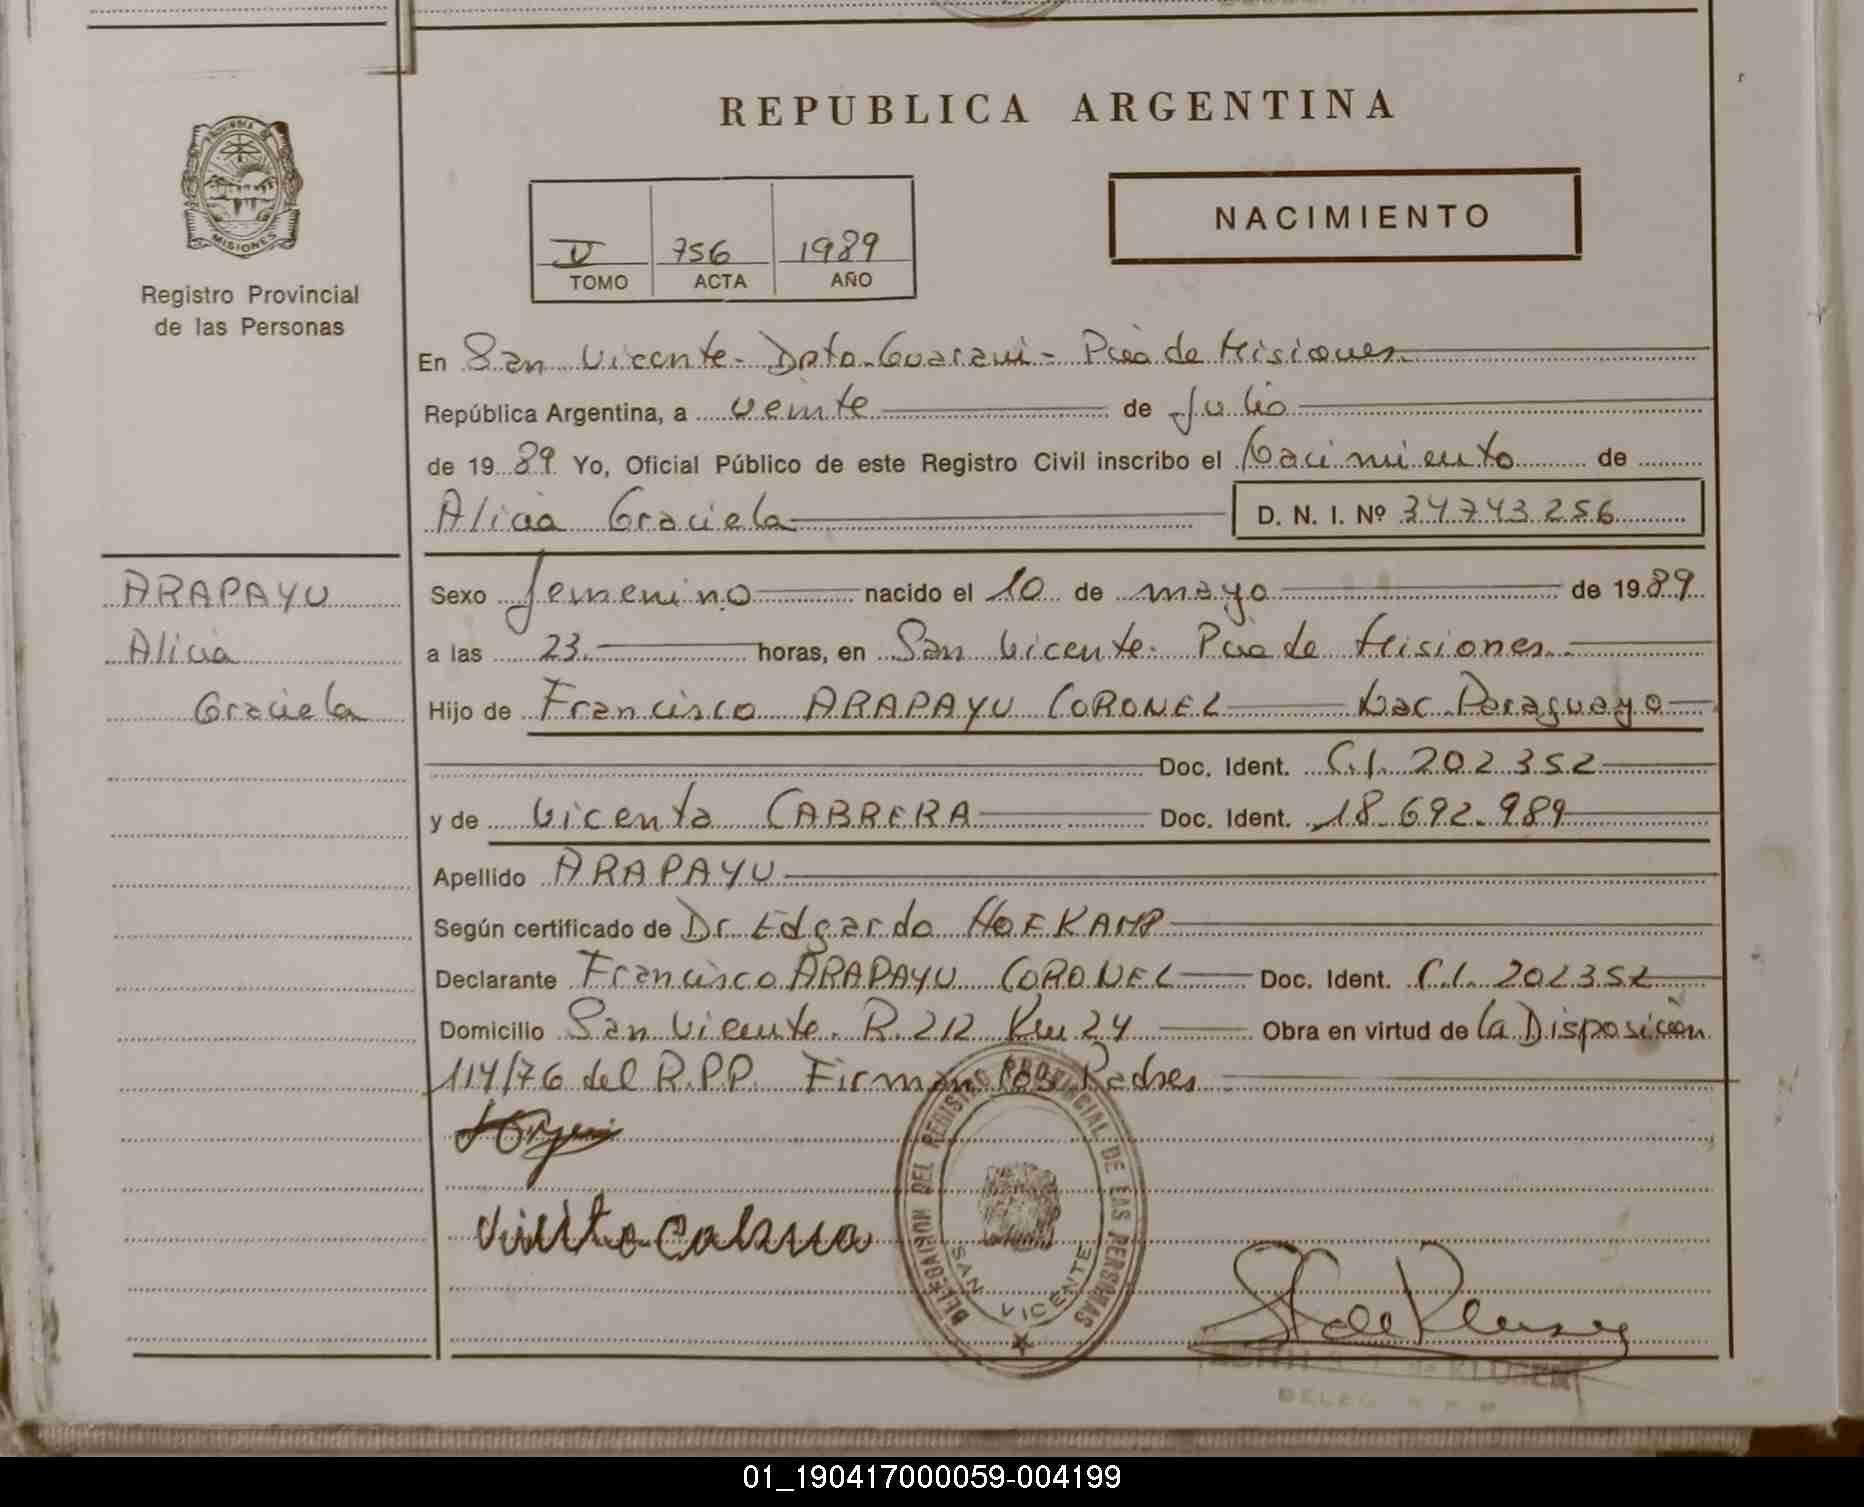 REPUBLICA ARGENTINA
MISIONES
Registro Provincial
de las Personas
V 756 1989
TOMO ACTA AÑO
NACIMIENTO
En San Vicente - Dpto. Guaraní - Pcia de Misiones
República Argentina, a veinte de Julio
de 1989 Yo, Oficial Público de este Registro Civil inscribo el Nacimiento de
Alicia Graciela D. N. I. Nº 34.743.256
ARAPAYU
Alicia
Graciela
Sexo femenino nacido el 10 de mayo de 1989
a las 23 horas, en San Vicente. Pcia de Misiones
Hijo de Francisco ARAPAYU CORONEL Nac. Paraguayo
Doc. Ident. C.I. 202352
y de Vicenta CABRERA Doc. Ident. 18.692.989
Apellido ARAPAYU
Según certificado de Dr. Edgardo HOFKAMP
Declarante Francisco ARAPAYU CORONEL Doc. Ident. C.I. 202352
Domicilio San Vicente. R. 212 Km 24 Obra en virtud de la Disposición
114/76 del R.P.P. Firman los Padres
DELEGACION DEL REGISTRO PROVINCIAL DE LAS PERSONAS
SAN VICENTE
01_190417000059-004199